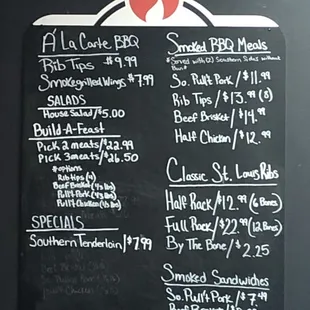 A' La Carte BBQ
Rib Tips $9.99
Smokegrilled Wings $7.99
SALADS
House Salad/$5.00
Build-A-Feast
Pick 2 meats/$22.99
Pick 3 meats/$26.50
*options
Rib tips (4)
Beef Brisket (1/3 lbs)
Pull't Pork (1/3 lbs)
Pull't Chicken (1/3 lbs)
SPECIALS
Southern Tenderloin/$7.99
Smoked BBQ Meals
*Served with (2) Southern Sides without Bun*
So. Pull't Pork/$11.99
Rib Tips/$13.99 (8)
Beef Brisket/$14.99
Half Chicken/$12.99
Classic St. Louis Ribs
Half Rack/$12.99 (6 Bones)
Full Rack/$22.99 (12 Bones)
By The Bone/$2.25
Smoked Sandwiches
So. Pull't Pork/$7.49